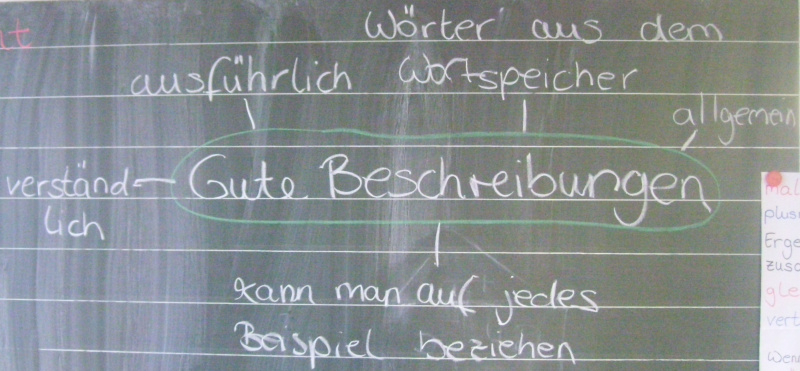 Wörter aus dem
ausführlich Wortspeicher
allgemein
verständ-
lich
Gute Beschreibungen
kann man auf jedes
Beispiel beziehen
mal
plus
Erge
zusa
gle
vert
Wenn